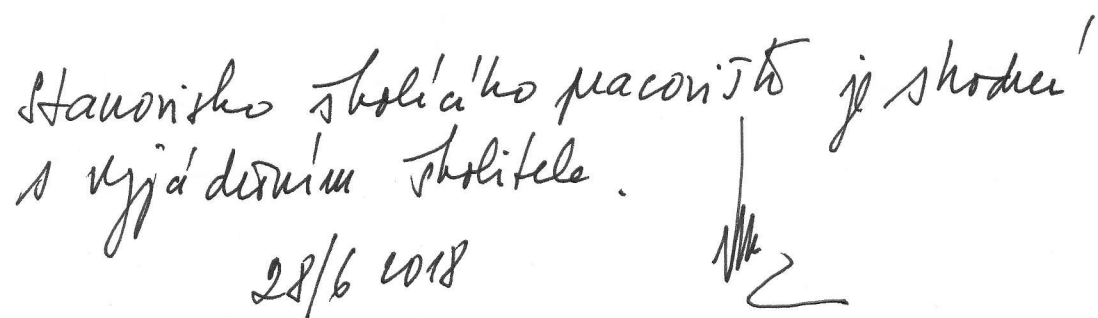 Stanovisko školícího pracoviště je shodné
s vyjádřením školitele.
28/6 2018